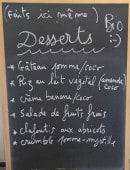 (faits ici même)
Bio
:-)
Desserts
* Gâteau pomme/coco
* Riz au lait végétal (amande/coco
* crème banane/coco
* Salade de fruits frais
* clafoutis aux abricots
* crumble pomme-myrtille